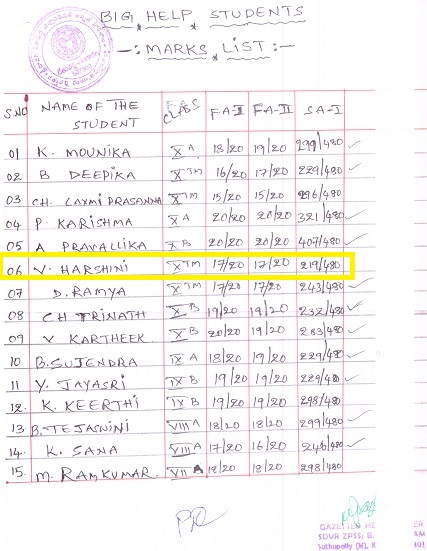 BIG HELP STUDENTS
-: MARKS LIST :-
S.NO NAME OF THE STUDENT CLASS FA-I FA-II SA-I
01 K. MOUNIKA X A 18/20 19/20 299/480
02 B DEEPIKA X TM 16/20 17/20 229/480
03 CH. LAXMI PRASANNA X TM 15/20 15/20 296/480
04 P KARISHMA X A 20/20 20/20 321/480
05 A PRAVALLIKA X B 20/20 20/20 407/480
06 V. HARSHINI X TM 17/20 17/20 219/480
07 D. RAMYA X TM 17/20 17/20 243/480
08 CH TRINATH X B 19/20 19/20 232/480
09 V KARTHEEK X B 20/20 19/20 283/480
10 B. SUJENDRA IX A 18/20 19/20 229/480
11 Y. JAYASRI IX B 19/20 19/20 229/480
12. K. KEERTHI IX B 19/20 19/20 298/480
13. B. TEJASWINI VIII A 18/20 18/20 299/480
14. K. SANA VIII A 17/20 16/20 246/480
15. M. RAMKUMAR VII A 18/20 18/20 298/480
GAZETTED HE
SDVR ZPSS; B.
Sathupally (M),